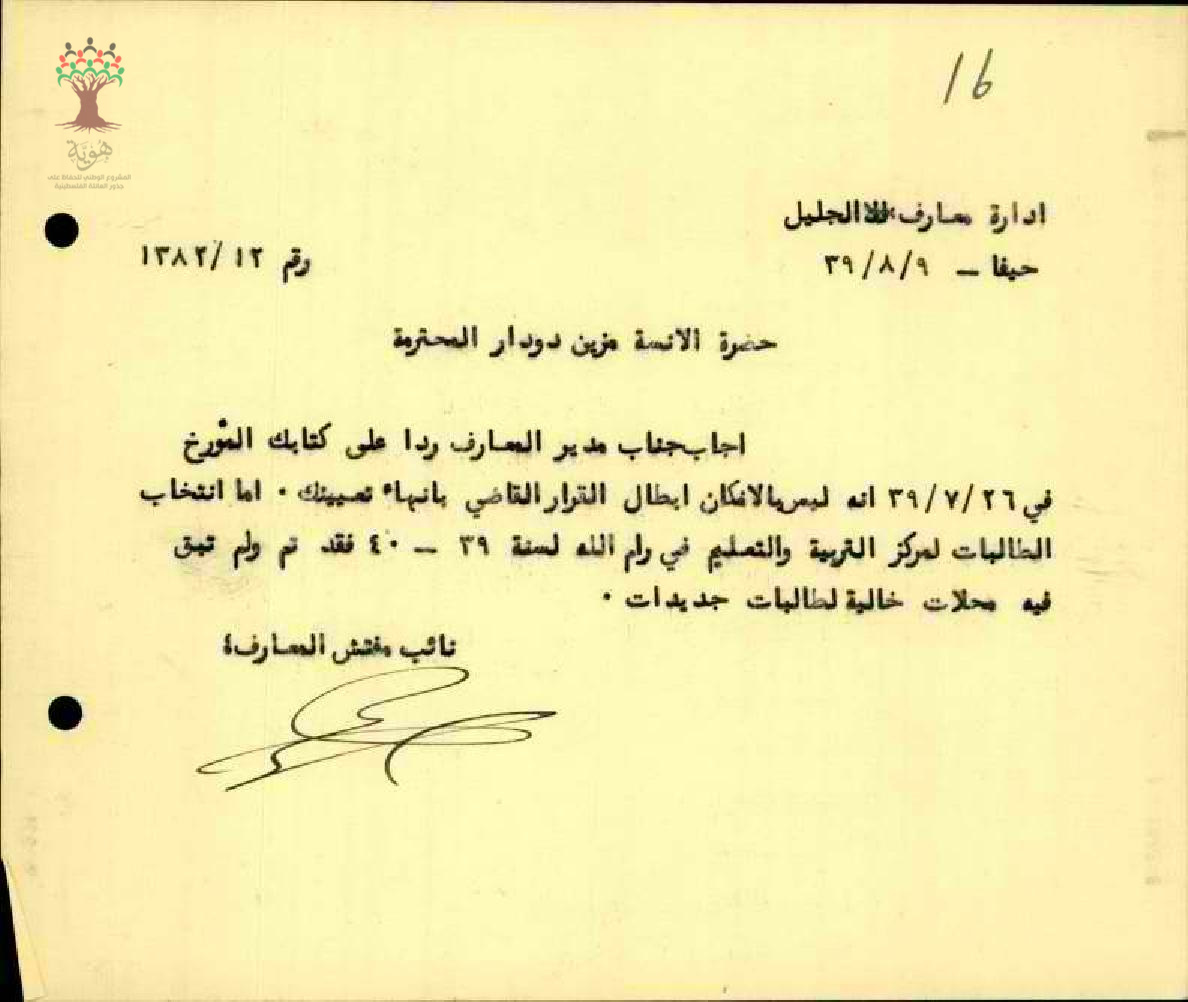 16
هوية
المشروع الوطني للحفاظ على
جذور العائلة الفلسطينية
ادارة معارف الجليل
حيفا – ٣٩/٨/٩
رقم ١٣٨٢/١٢
حضرة الانسة مزين دودار المحترمة
اجاب جناب مدير المعارف ردا على كتابك المؤرخ
في ٣٩/٧/٢٦ انه ليس بالامكان ابطال القرار القاضي بانهاء تعيينك ٠ اما انتخاب
الطالبات لمركز التربية والتعليم في رام الله لسنة ٣٩ – ٤٠ فقد تم ولم تبق
فيه محلات خالية لطالبات جديدات ٠
نائب مفتش المعارف